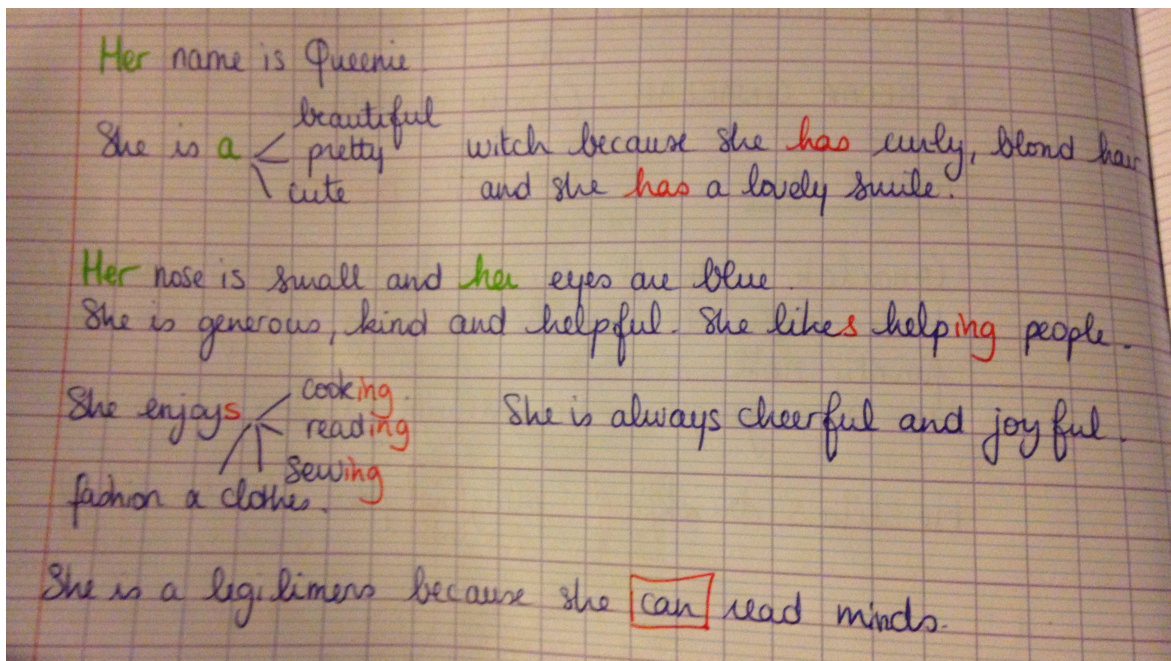 Her name is Queenie
She is a
beautiful
pretty
cute
witch because she has curly, blond hair
and she has a lovely smile.
Her nose is small and her eyes are blue.
She is generous, kind and helpful. She likes helping people.
She enjoys
cooking.
reading
sewing
fashion & clothes.
She is always cheerful and joyful.
She is a legilimens because she can read minds.